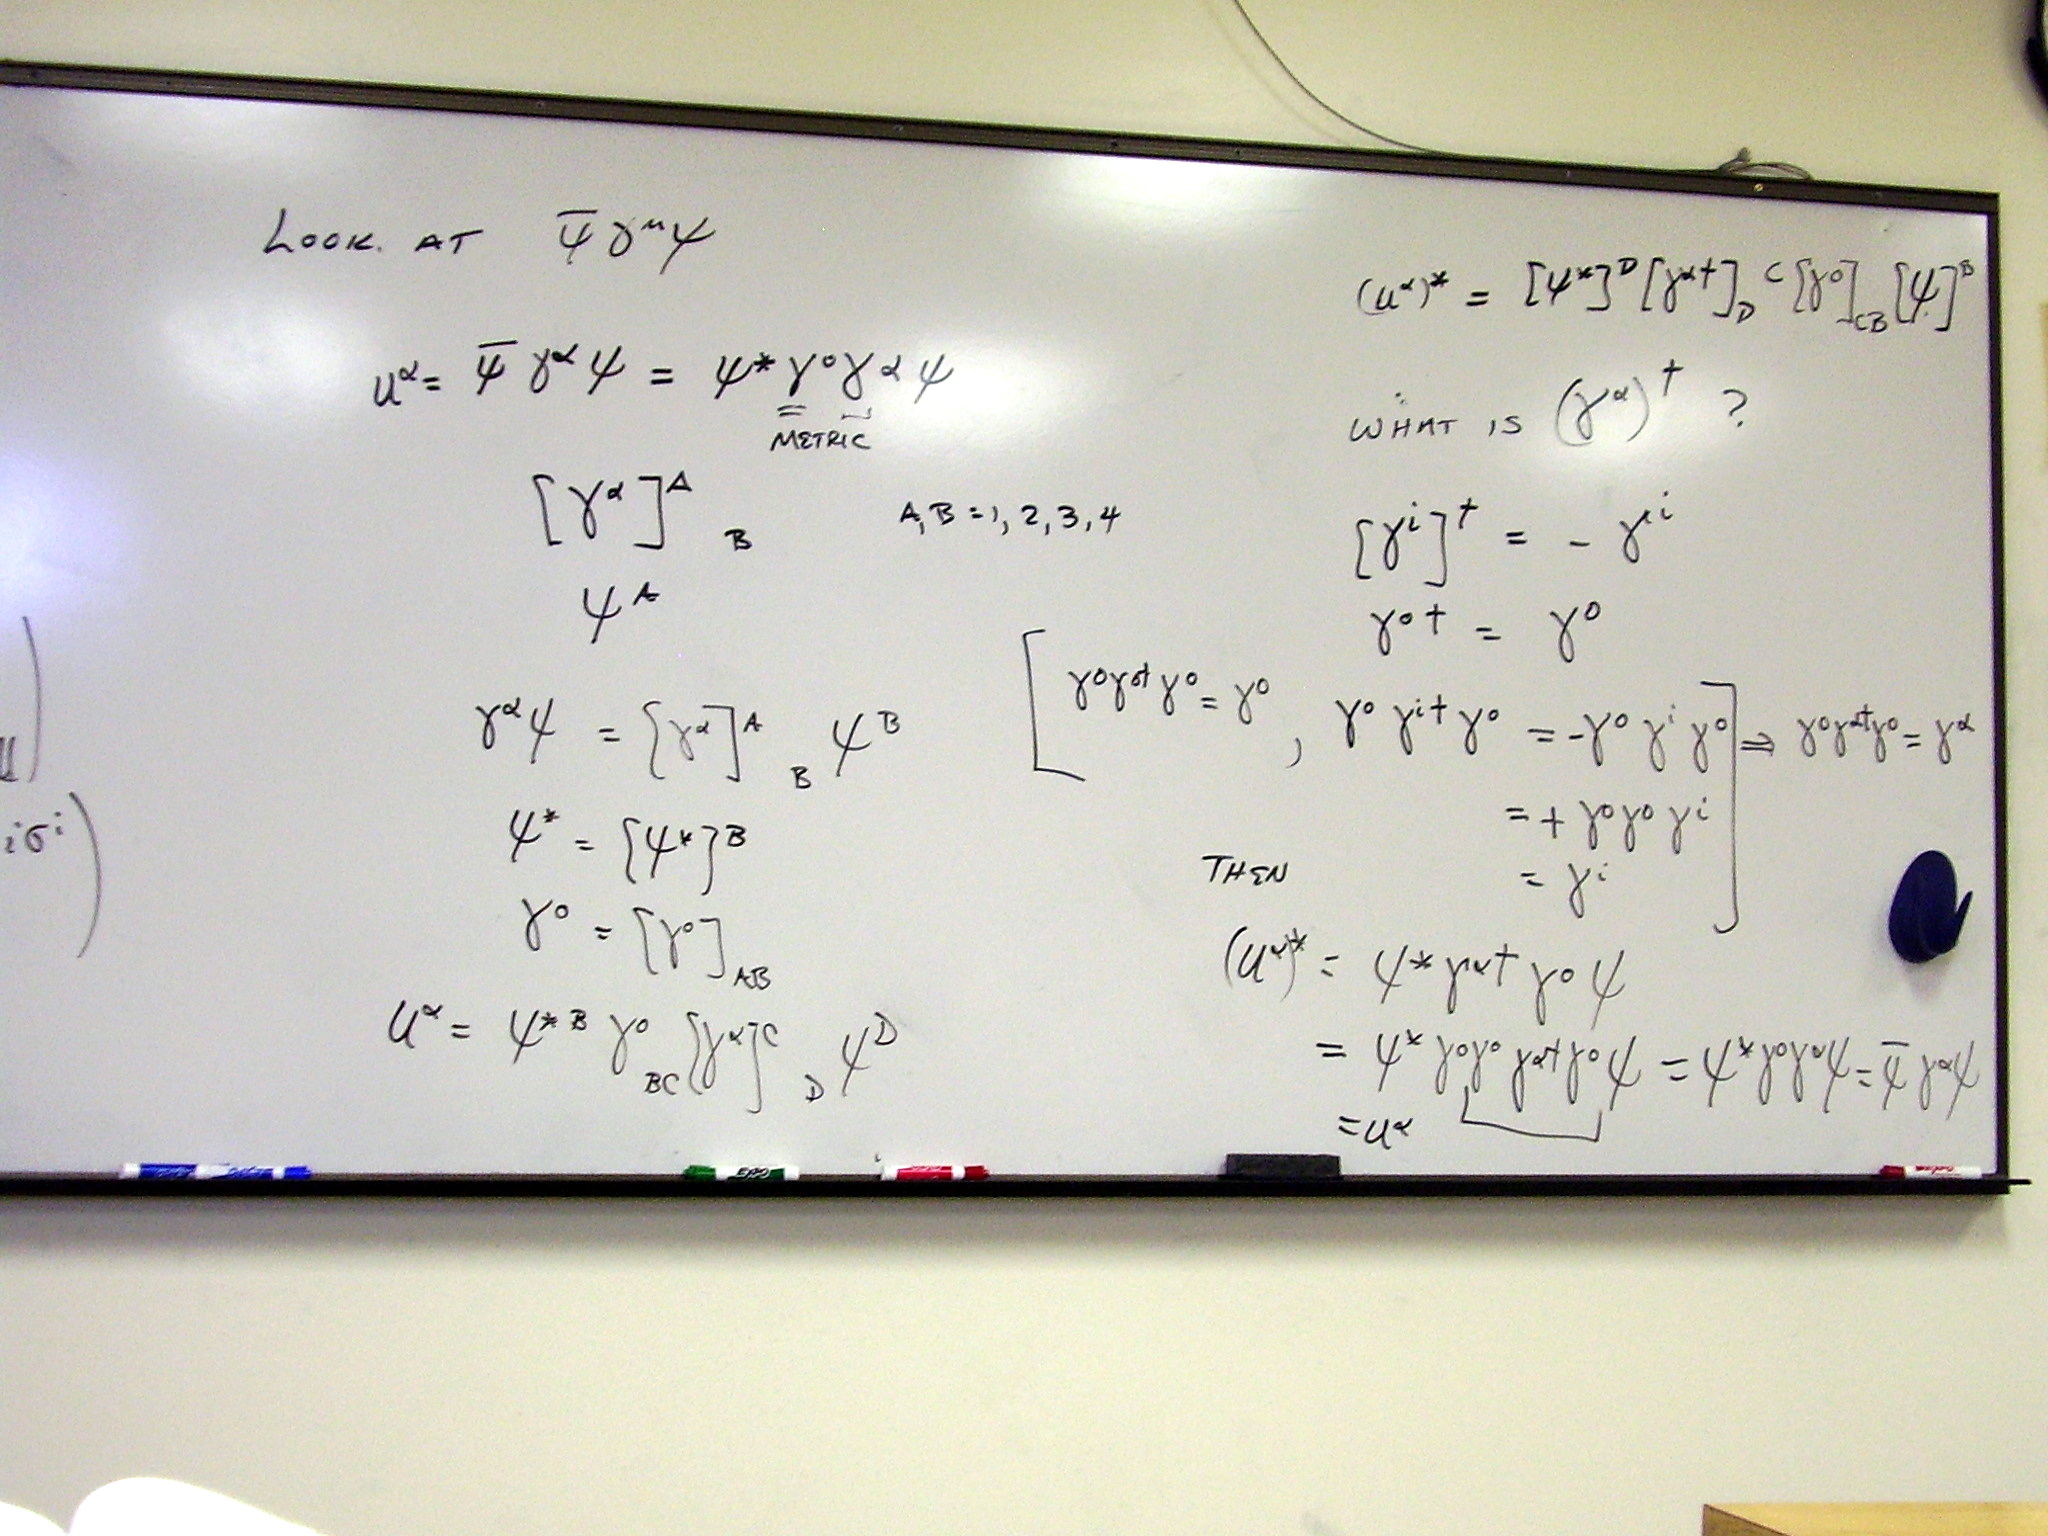 LOOK AT ψ̄ γ^μ ψ
u^α = ψ̄ γ^α ψ = ψ* γ⁰ γ^α ψ
METRIC
[γ^α]^A _B
A, B = 1, 2, 3, 4
ψ^A
γ^α ψ = [γ^α]^A _B ψ^B
ψ* = [ψ*]^B
γ⁰ = [γ⁰]_AB
u^α = ψ*^B γ⁰_BC [γ^α]^C _D ψ^D
iσ^i )
(u^α)* = [ψ*]^D [γ^α†]_D ^C [γ⁰]_CB [ψ]^B
WHAT IS (γ^α)^† ?
[γ^i]^† = - γ^i
γ⁰† = γ⁰
[ γ⁰γ⁰†γ⁰ = γ⁰ , γ⁰ γ^i† γ⁰ = -γ⁰ γ^i γ⁰ ] ⇒ γ⁰γ^α†γ⁰ = γ^α
= + γ⁰γ⁰ γ^i
= γ^i
THEN
(u^α)* = ψ* γ^α† γ⁰ ψ
= ψ* γ⁰γ⁰ γ^α† γ⁰ ψ = ψ* γ⁰γ^α ψ = ψ̄ γ^α ψ
= u^α
EXPO